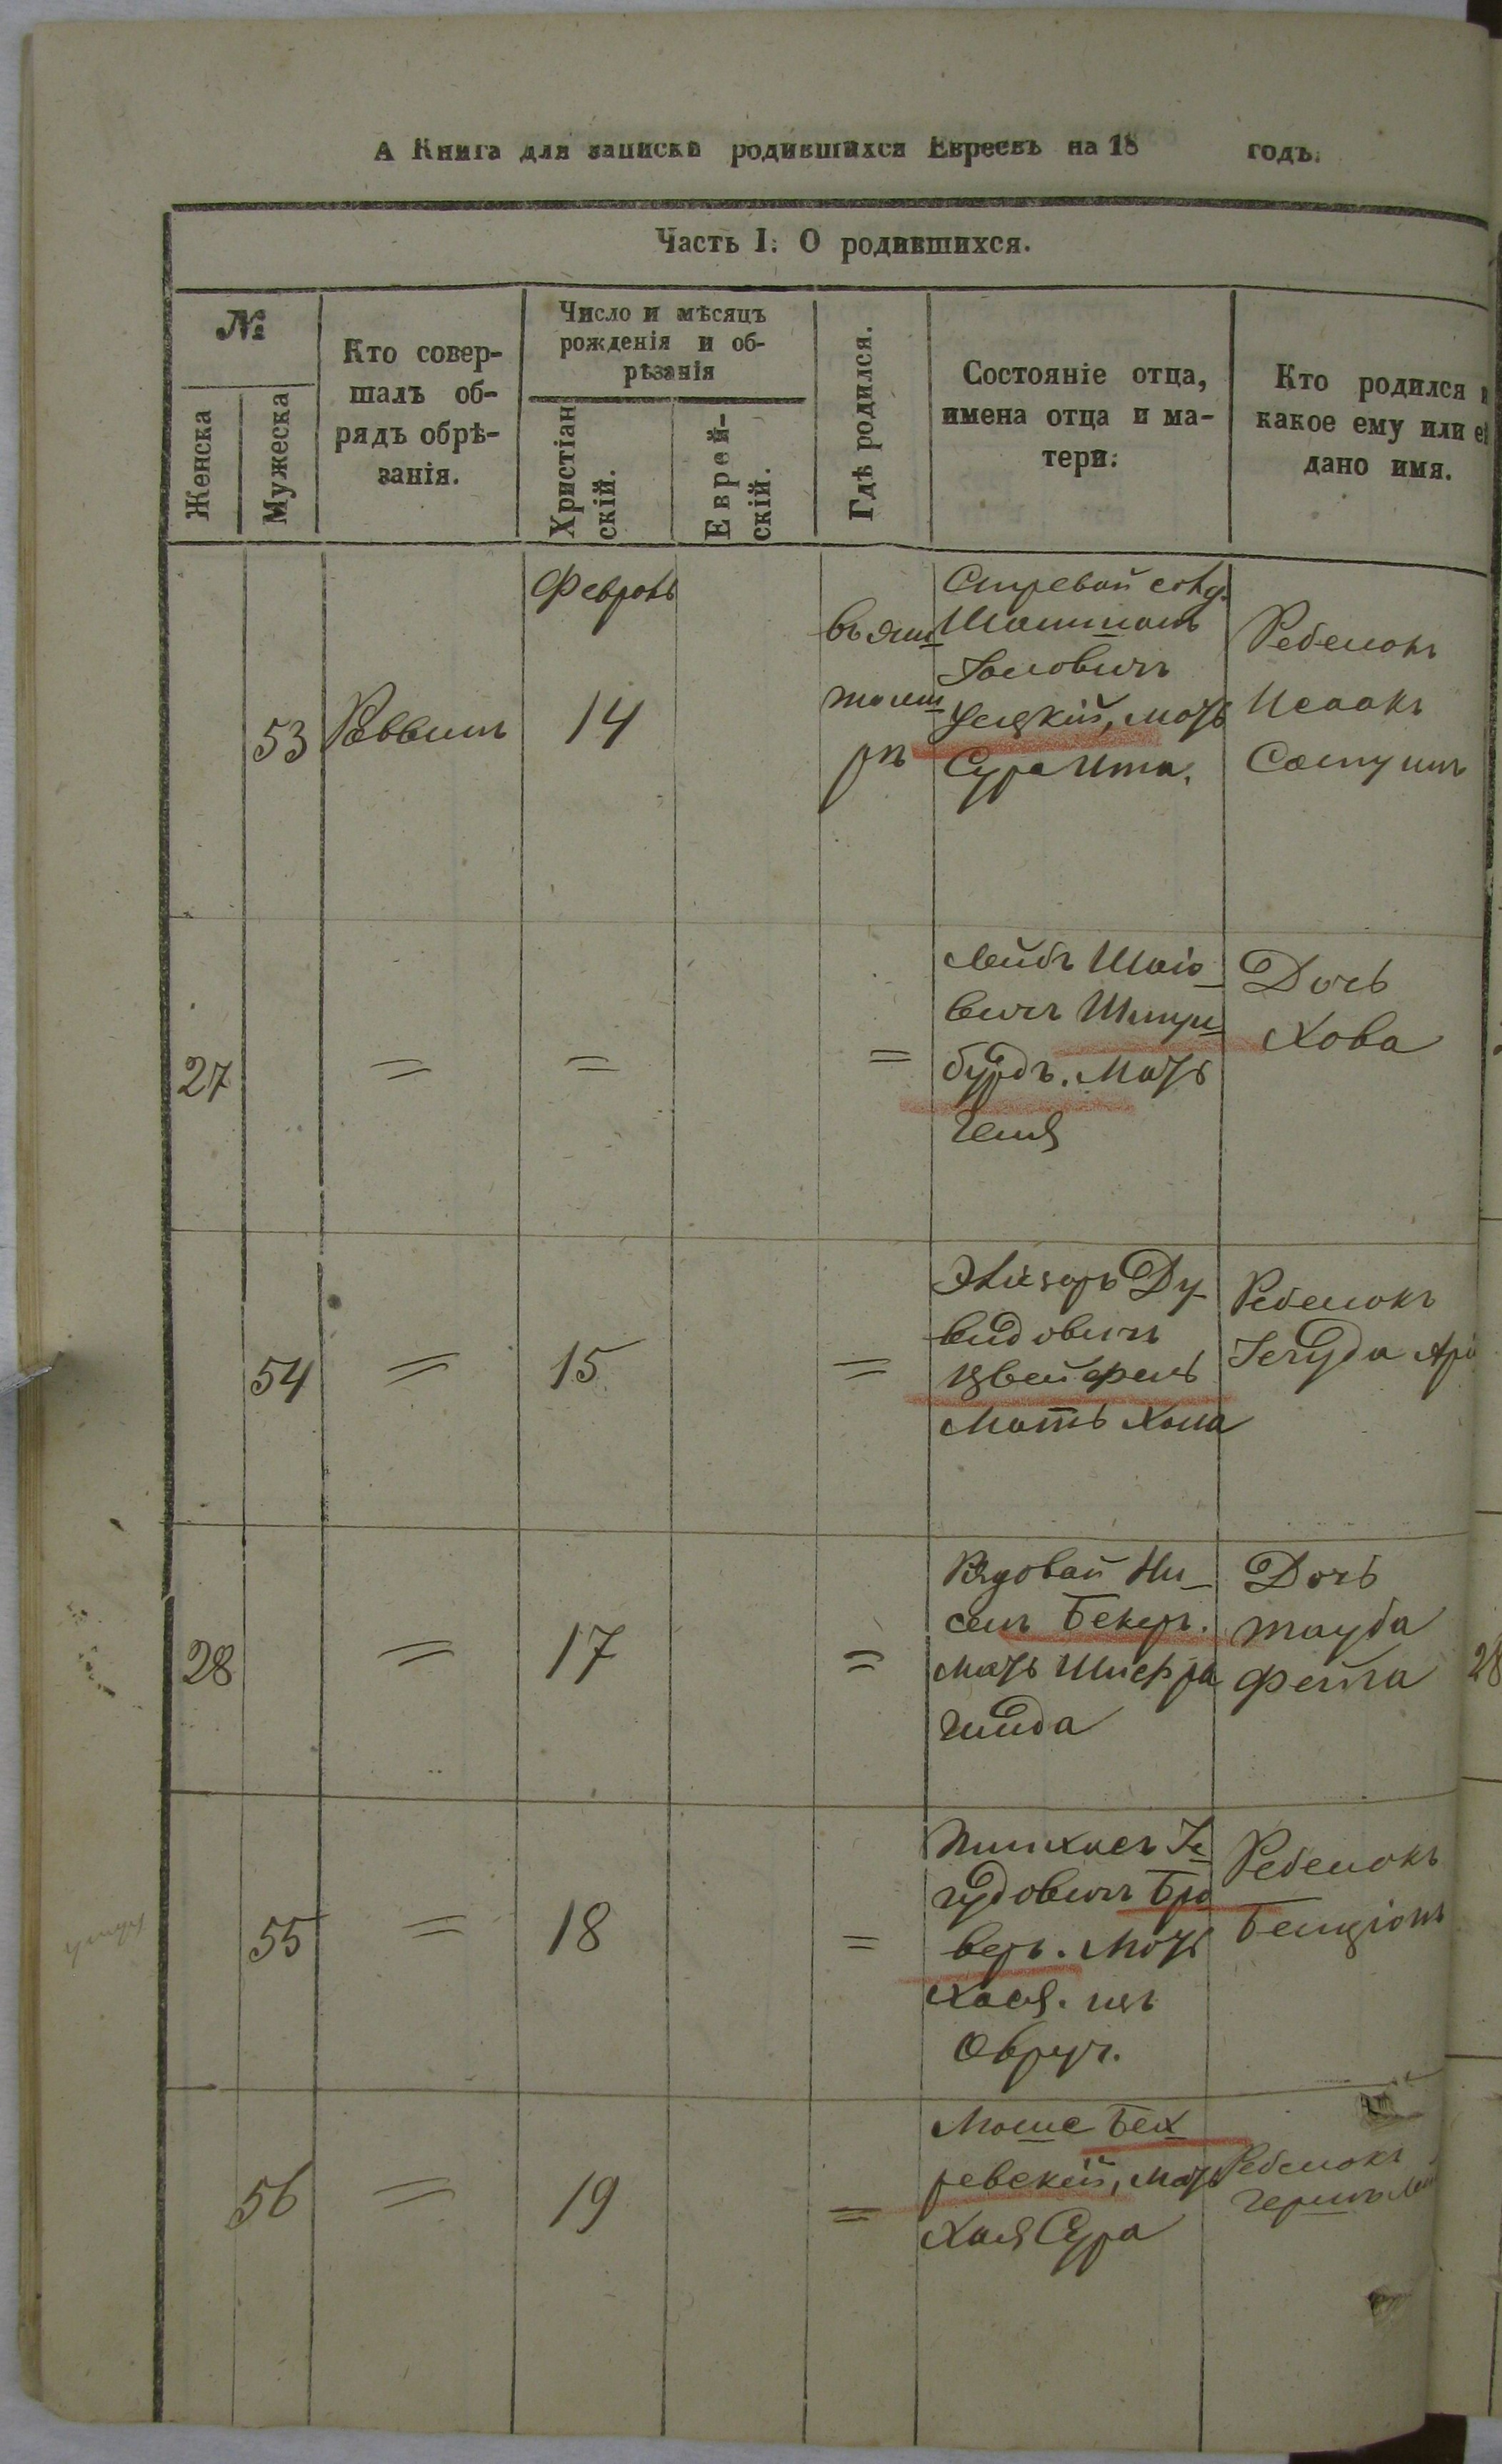 А Книга для записки родившихся Евреевъ на 18 годъ.
Часть I. О родившихся.
№
Женска
Мужеска
Кто совер-
шалъ об-
рядъ обрѣ-
занія.
Число и мѣсяцъ
рожденія и об-
рѣзанія
Христіан
скій.
Еврей-
скій.
Гдѣ родился.
Состояніе отца,
имена отца и ма-
тери.
Кто родился и
какое ему или ей
дано имя.
53
Раввинъ
Февраль
14
въ
рѣ
мать
Сура Ита.
Ребенокъ
Исаакъ
27
=
=
=
Лейбъ Шаіо-
вичъ
бурдъ. мать
Геня
Дочь
Хова
54
=
15
=
Эліезаръ Ду-
видовичъ
Цвейфель
Мать Хана
Ребенокъ
Іегуда Арі
28
=
17
=
Рядовой Ни-
сенъ Бекеръ.
мать Шифра
Гинда
Дочь
Тауба
Фейга
28
55
=
18
=
Пинхасъ Іе
гудовичъ Бра
веръ. мать
Хася. изъ
Овруч.
Ребенокъ
Бенціонъ
56
=
19
=
Моше Бех
ревскій, мать
Хая Сура
Ребенокъ
Гершъ